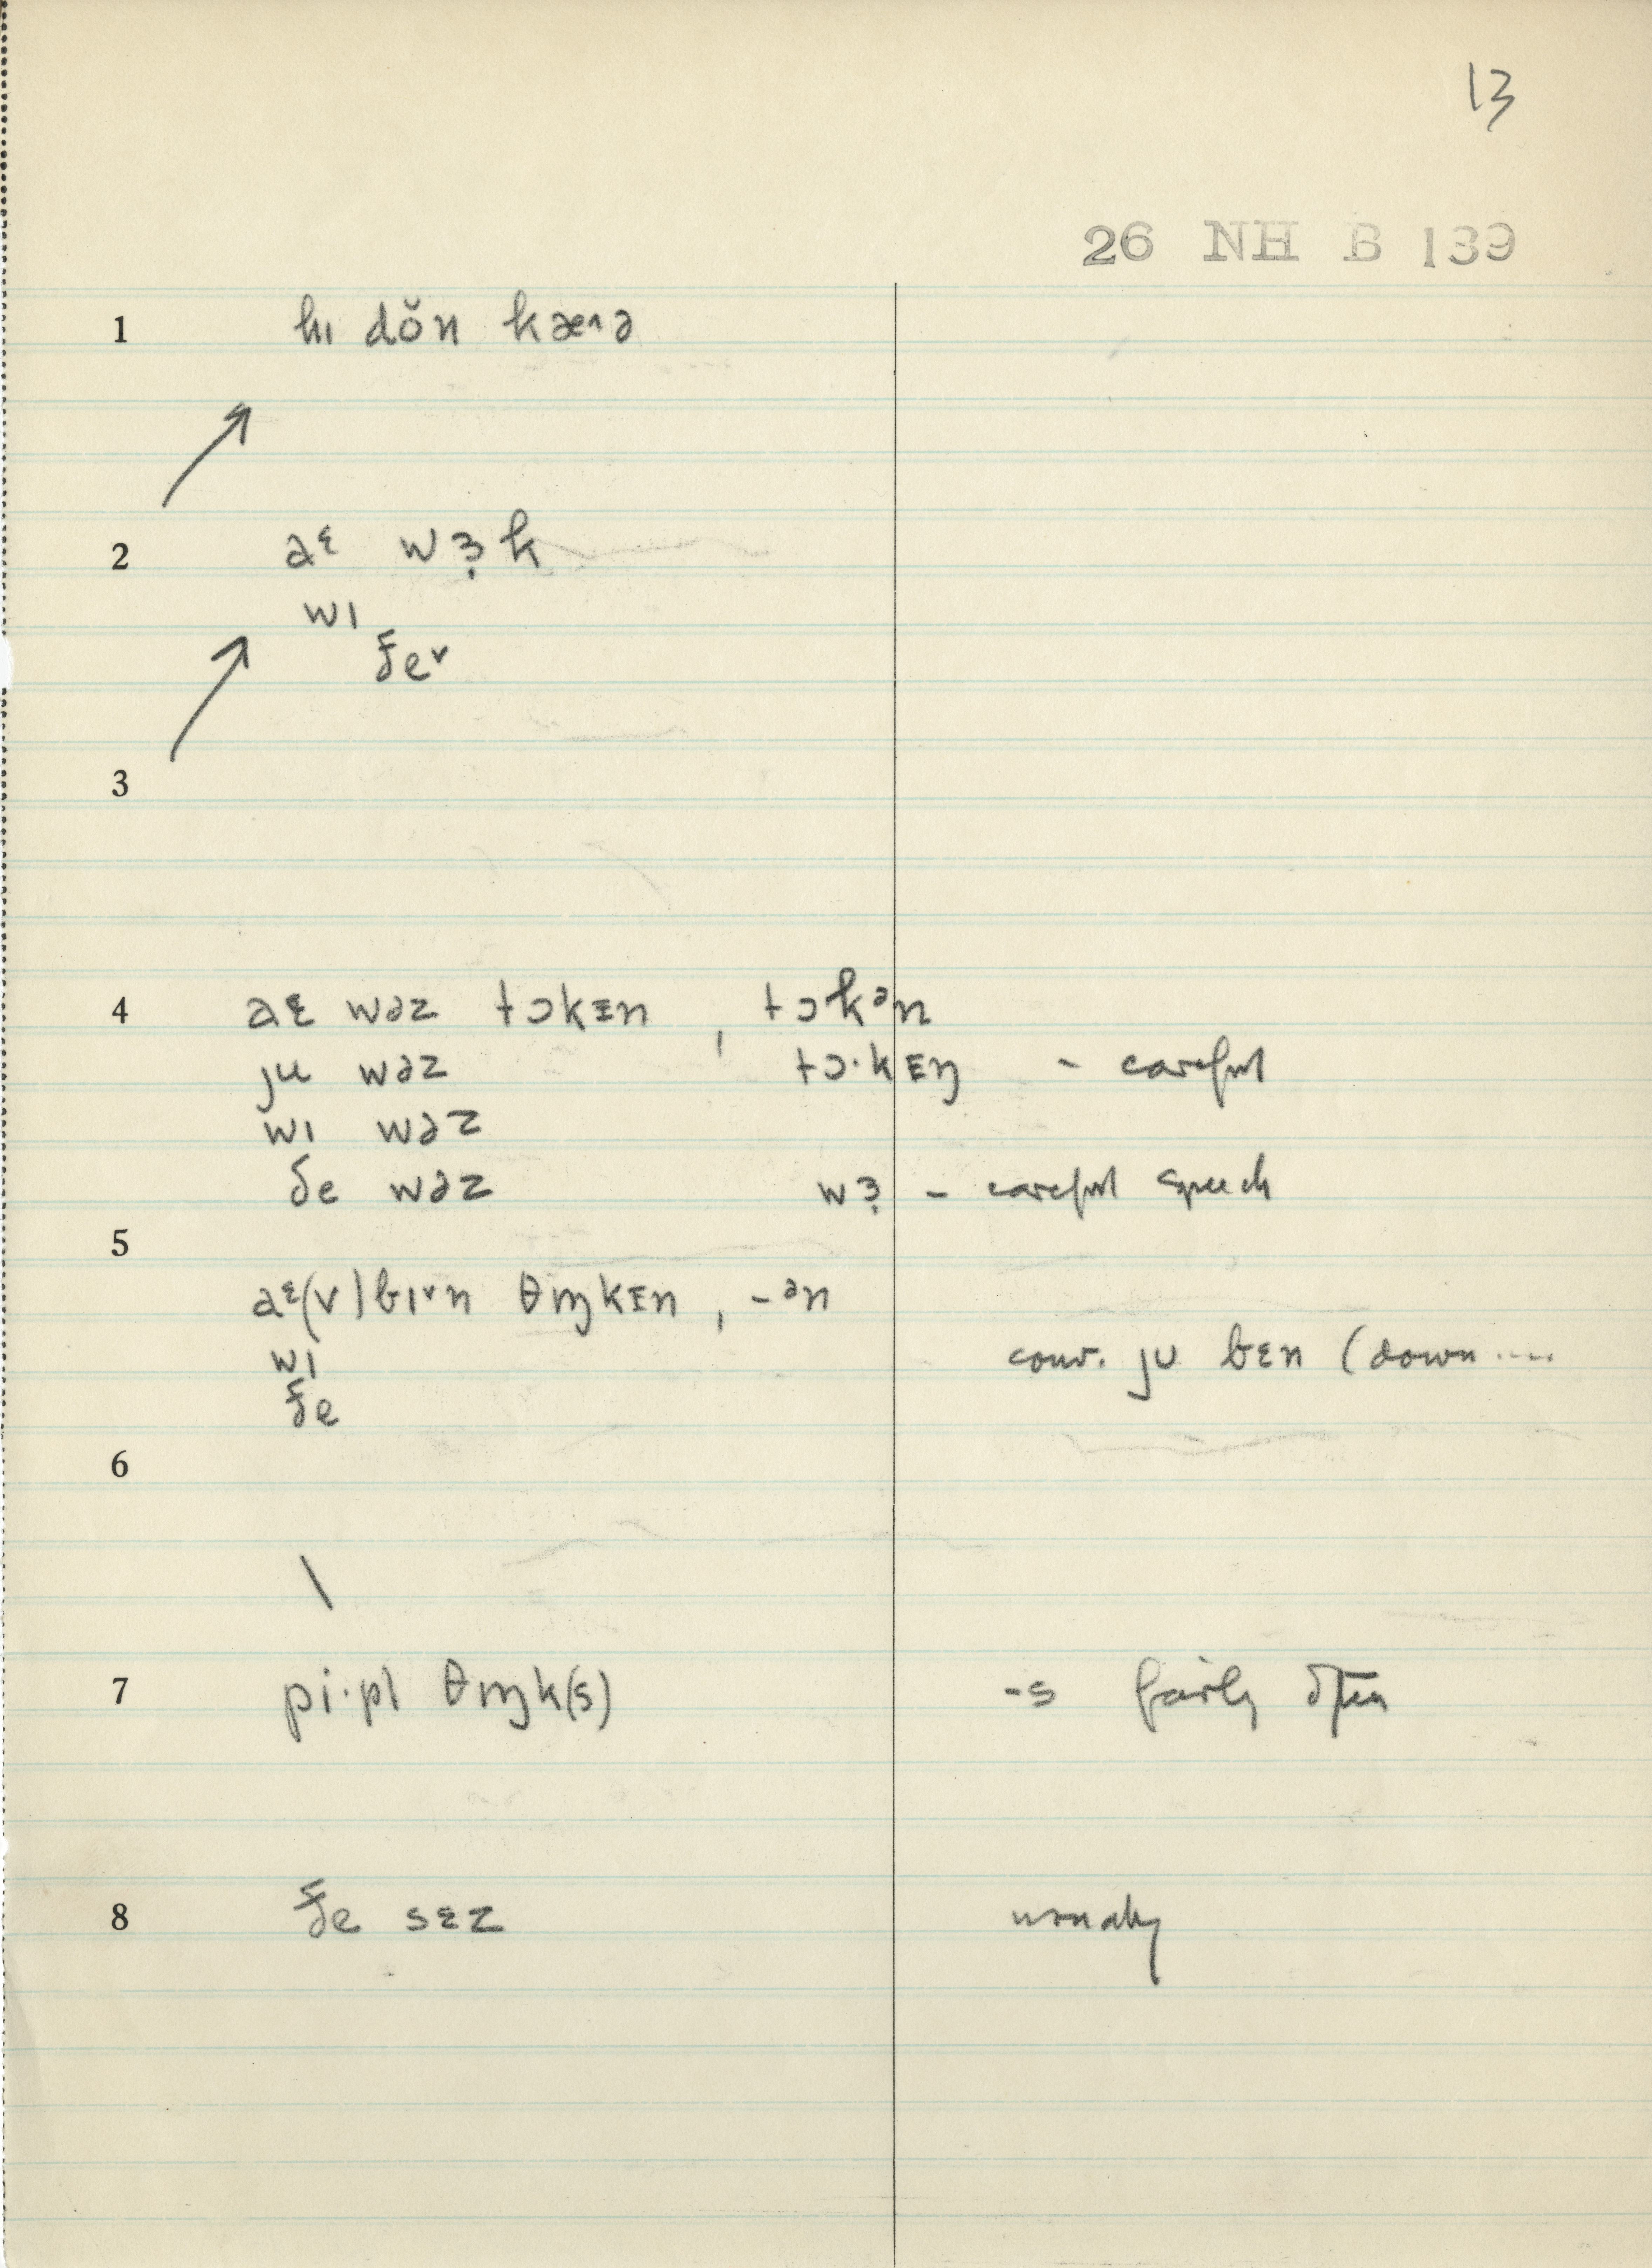 13
26 NH B 139
1 hɪ dŏn kæ˄ə
2 aᵋ wɜ̣k
wɪ
ðe˅
3
4 aɛ wəz tɔkɪn , tɔkᵊn
ju wəz tɔ·kɪŋ - careful
wɪ wəz
ðe wəz wɜ̣ - careful speech
5
aᵋ(v) bɪ˅n θɪŋkɪn , -ᵊn
wɪ conv. jʊ bɛn (down ....
ðe
6
\
7 pi·pl θɪŋk(s) -s fairly often
8 ðe sɛz usually